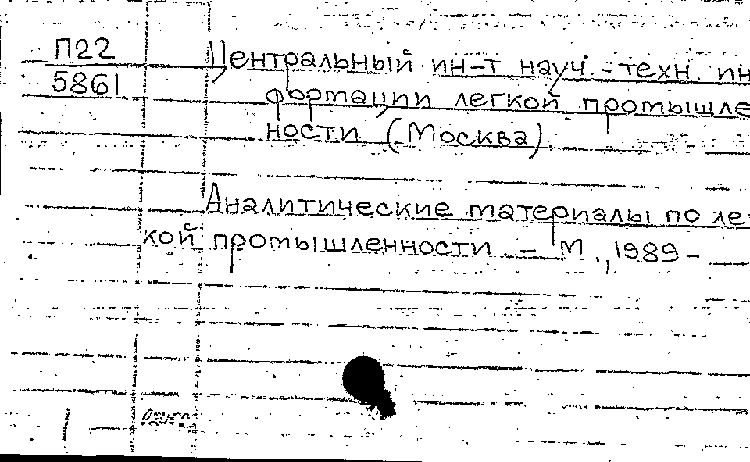 П22
5861
Центральный ин-т науч.-техн. ин
формации легкой промышле
ности (Москва).
Аналитические материалы по ле
кой промышленности. - М., 1989 -